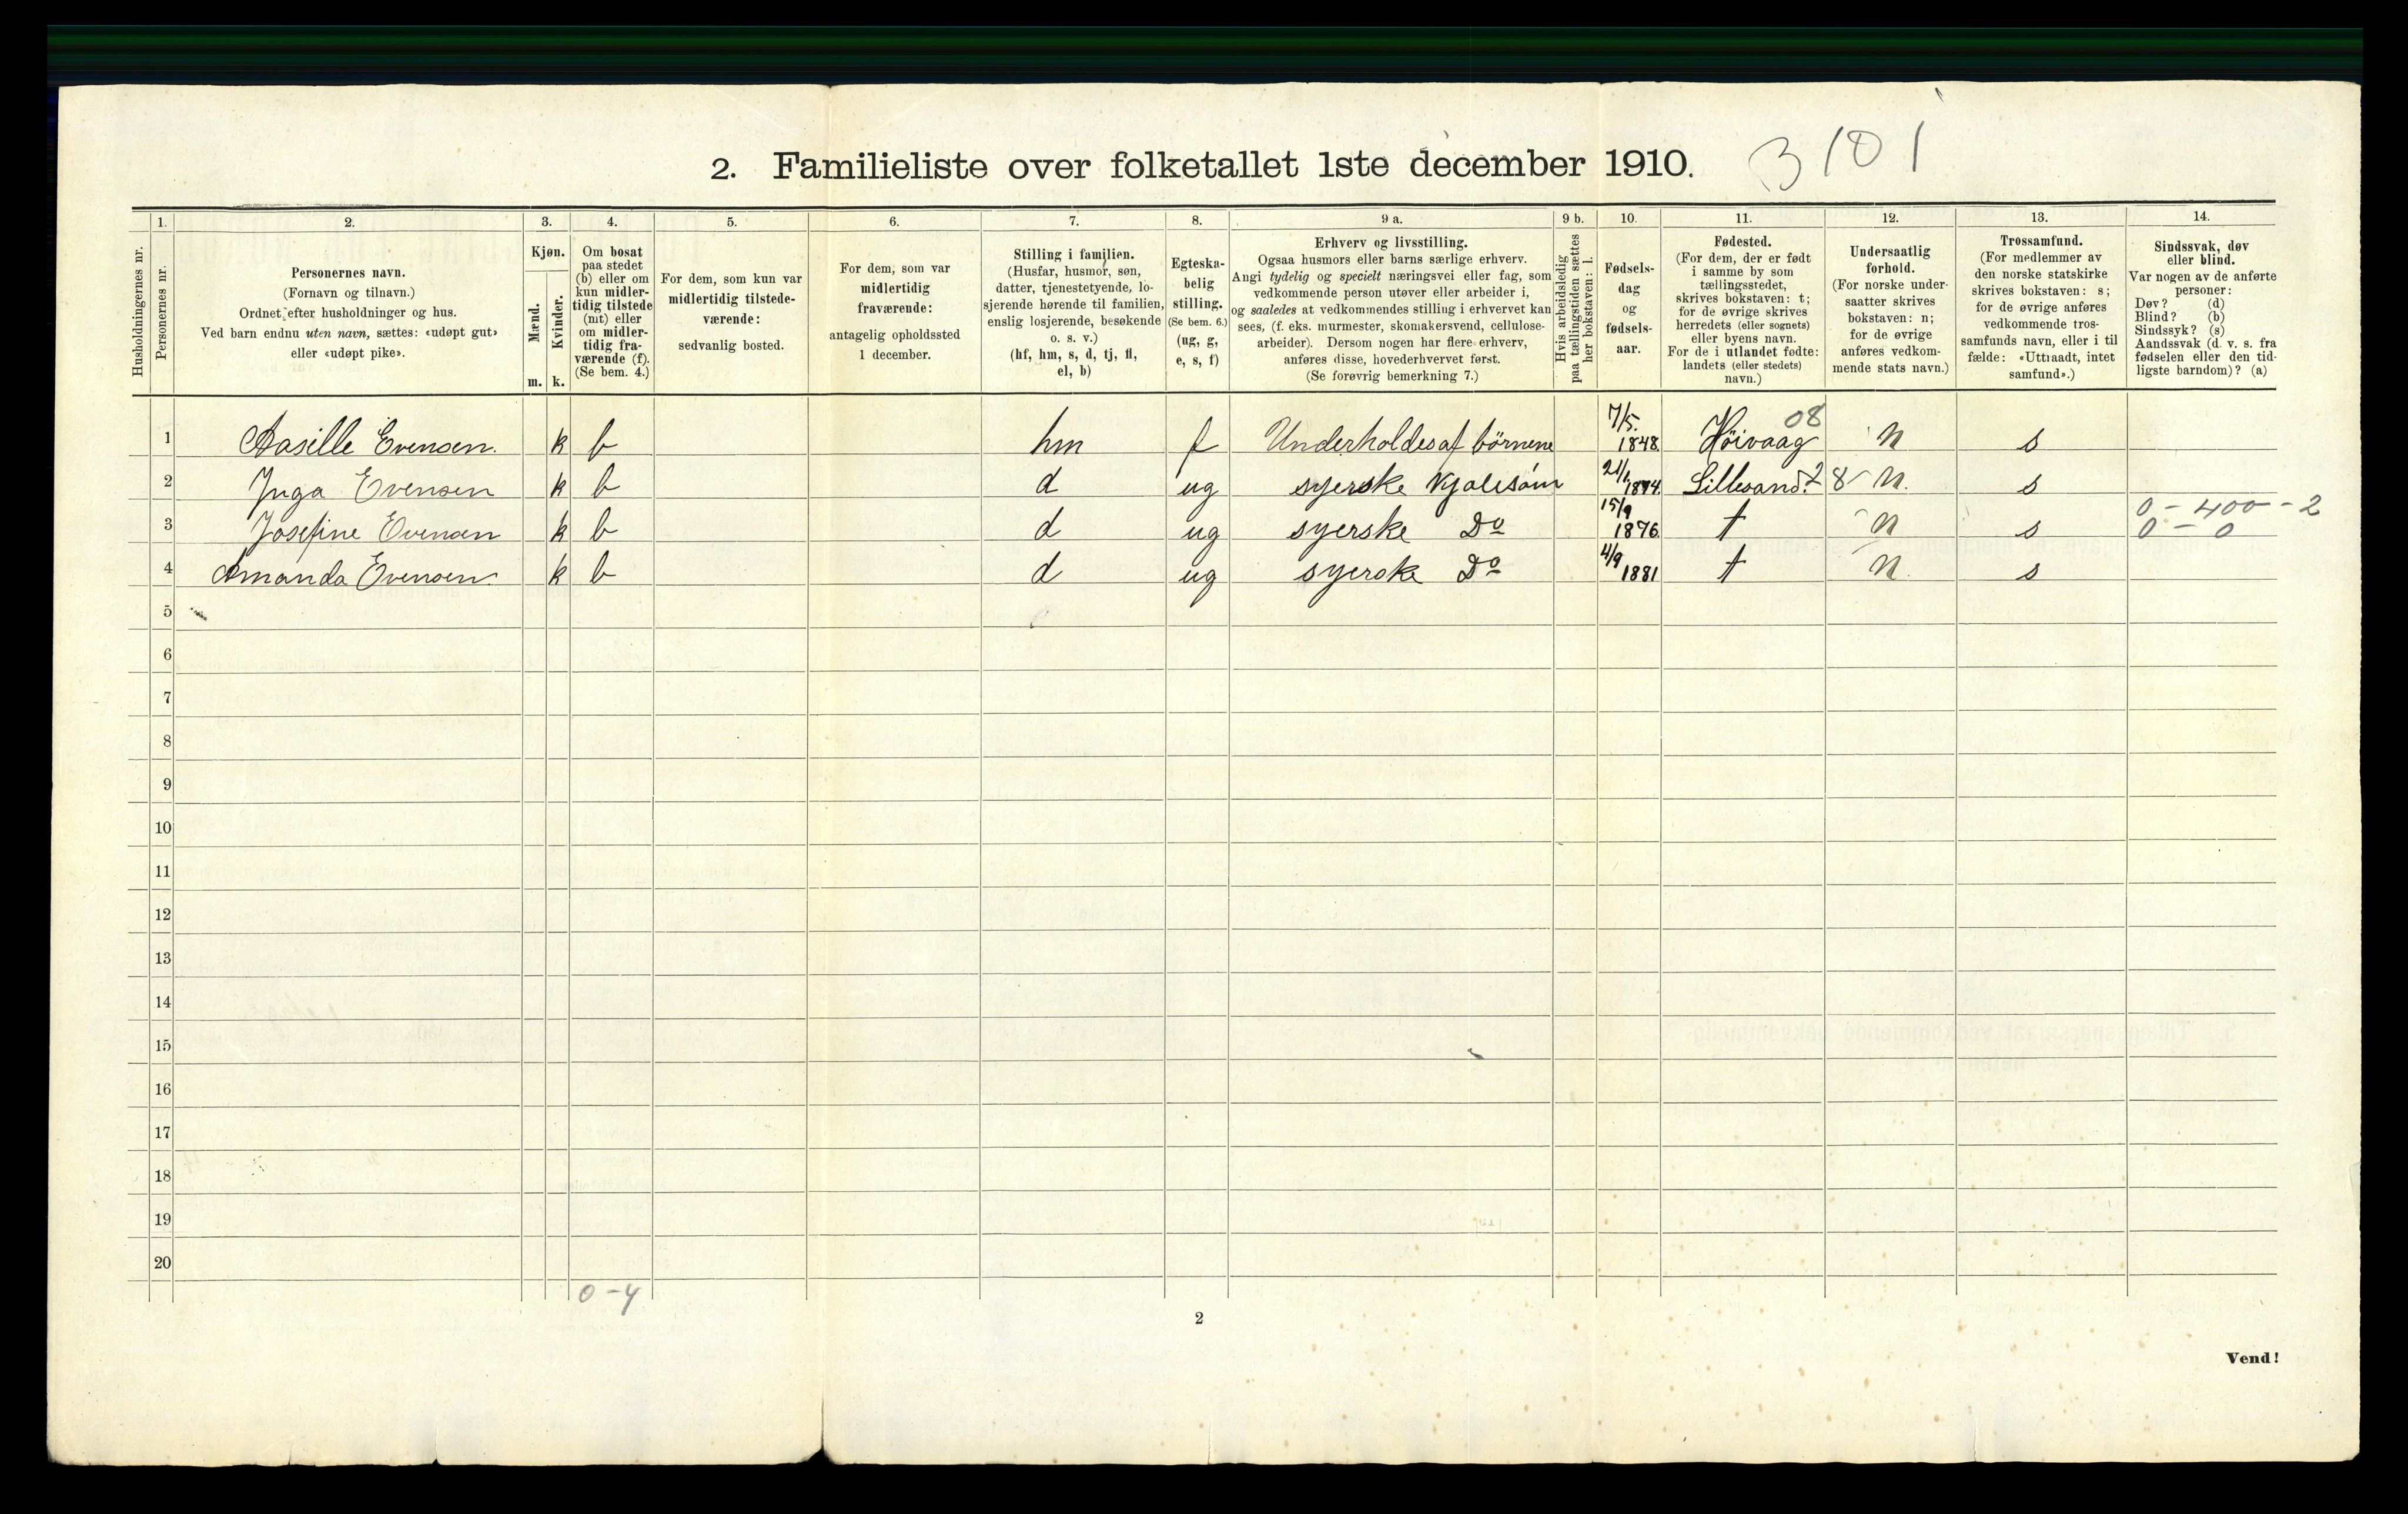 2. Familieliste over folketallet 1ste december 1910. 3101
1. 2. 3. 4. 5. 6. 7. 8. 9 a. 9 b. 10. 11. 12. 13. 14.
Husholdningernes nr.
Personernes nr.
Personernes navn.
(Fornavn og tilnavn.)
Ordnet efter husholdninger og hus.
Ved barn endnu uten navn, sættes: «udøpt gut»
eller «udøpt pike».
Kjøn.
Mænd.
Kvinder.
m. k.
Om bosat
paa stedet
(b) eller om
kun midler-
tidig tilstede
(mt) eller
om midler-
tidig fra-
værende (f).
(Se bem. 4.)
For dem, som kun var
midlertidig tilstede-
værende:
sedvanlig bosted.
For dem, som var
midlertidig
fraværende:
antagelig opholdssted
1 december.
Stilling i familien.
(Husfar, husmor, søn,
datter, tjenestetyende, lo-
sjerende hørende til familien,
enslig losjerende, besøkende
o. s. v.)
(hf, hm, s, d, tj, fl,
el, b)
Egteska-
belig
stilling.
(Se bem. 6.)
(ug, g,
e, s, f)
Erhverv og livsstilling.
Ogsaa husmors eller barns særlige erhverv.
Angi tydelig og specielt næringsvei eller fag, som
vedkommende person utøver eller arbeider i,
og saaledes at vedkommendes stilling i erhvervet kan
sees, (f. eks. murmester, skomakersvend, cellulose-
arbeider). Dersom nogen har flere erhverv,
anføres disse, hovederhvervet først.
(Se forøvrig bemerkning 7.)
Hvis arbeidsledig
paa tællingstiden sættes
her bokstaven: l.
Fødsels-
dag
og
fødsels-
aar.
Fødested.
(For dem, der er født
i samme by som
tællingsstedet,
skrives bokstaven: t;
for de øvrige skrives
herredets (eller sognets)
eller byens navn.
For de i utlandet fødte:
landets (eller stedets)
navn.)
Undersaatlig
forhold.
(For norske under-
saatter skrives
bokstaven: n;
for de øvrige
anføres vedkom-
mende stats navn.)
Trossamfund.
(For medlemmer av
den norske statskirke
skrives bokstaven: s;
for de øvrige anføres
vedkommende tros-
samfunds navn, eller i til
fælde: «Uttraadt, intet
samfund».)
Sindssvak, døv
eller blind.
Var nogen av de anførte
personer:
Døv? (d)
Blind? (b)
Sindssyk? (s)
Aandssvak (d. v. s. fra
fødselen eller den tid-
ligste barndom)? (a)
1 Aasille Evensen. k b hm f Underholdes af börnene 7/5. 1848. Höivaag 08 n s
2 Inga Evensen k b d ug syerske Kjolesöm 21/1 1874. Lillesand. 28 n. s
0 - 400 - 2
3 Josefine Evensen k b d ug syerske Do 15/9 1876. t n s 0 - 0
4 Amanda Evensen k b d ug syerske Do 4/9 1881 t n. s
5
6
7
8
9
10
11
12
13
14
15
16
17
18
19
20
0 - 4
2
Vend!